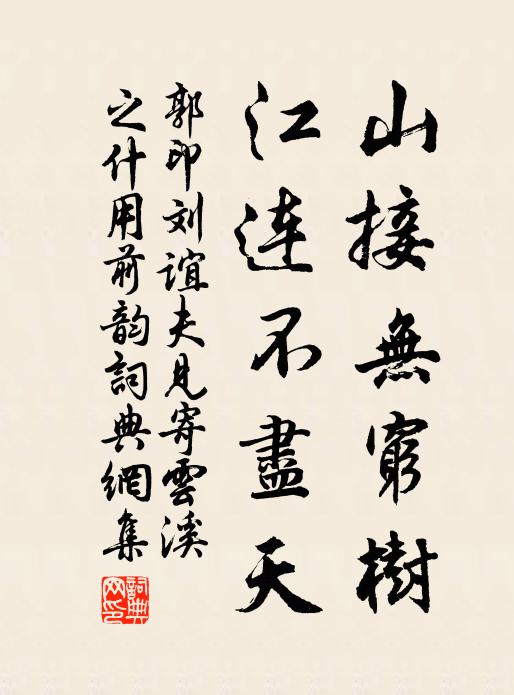 山接無窮樹
江连不盡天
郭印刘谊夫見寄雲溪
之什用前韵詞典網集
詞典网印